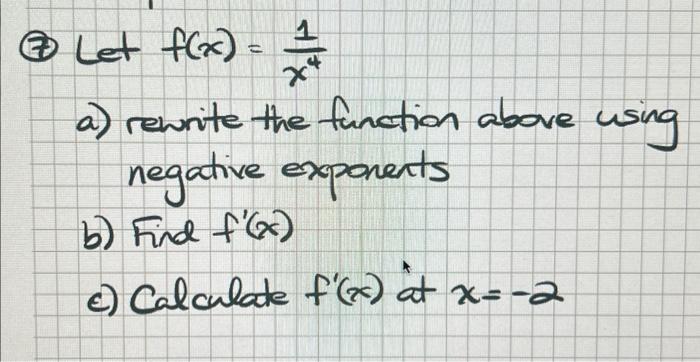 ⑦ Let f(x) = 1/x⁴
a) rewrite the function above using
negative exponents
b) Find f'(x)
c) Calculate f'(x) at x = -2